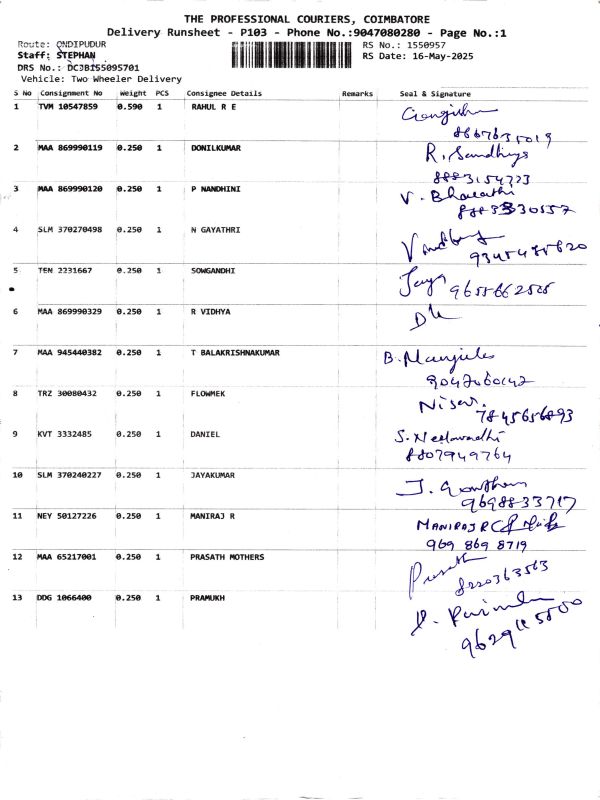 THE PROFESSIONAL COURIERS, COIMBATORE
Delivery Runsheet - P103 - Phone No.:9047080280 - Page No.:1
Route: ONDIPUDUR
RS No.: 1550957
Staff: STEPHAN
RS Date: 16-May-2025
DRS No.: DCJB155095701
Vehicle: Two Wheeler Delivery
S No Consignment No Weight PCS Consignee Details Remarks Seal & Signature
1 TVM 10547859 0.590 1 RAHUL R E
8867635019
2 MAA 869990119 0.250 1 DONILKUMAR R. Sandhya
8883154723
3 MAA 869990120 0.250 1 P NANDHINI V. Bharathi
8883330557
4 SLM 370270498 0.250 1 N GAYATHRI
9345485820
5 TEN 2231667 0.250 1 SOWGANDHI Jaya 9655662525
6 MAA 869990329 0.250 1 R VIDHYA
7 MAA 945440382 0.250 1 T BALAKRISHNAKUMAR B. Manjula
9047060142
8 TRZ 30080432 0.250 1 FLOWMEK
7845656893
9 KVT 3332485 0.250 1 DANIEL S. Neelavadhi
8807949764
10 SLM 370240227 0.250 1 JAYAKUMAR J. Gowtham
9698833717
11 NEY 50127226 0.250 1 MANIRAJ R MANIRAJ R
969 869 8719
12 MAA 65217001 0.250 1 PRASATH MOTHERS Prasath
8220363563
13 DDG 1066400 0.250 1 PRAMUKH